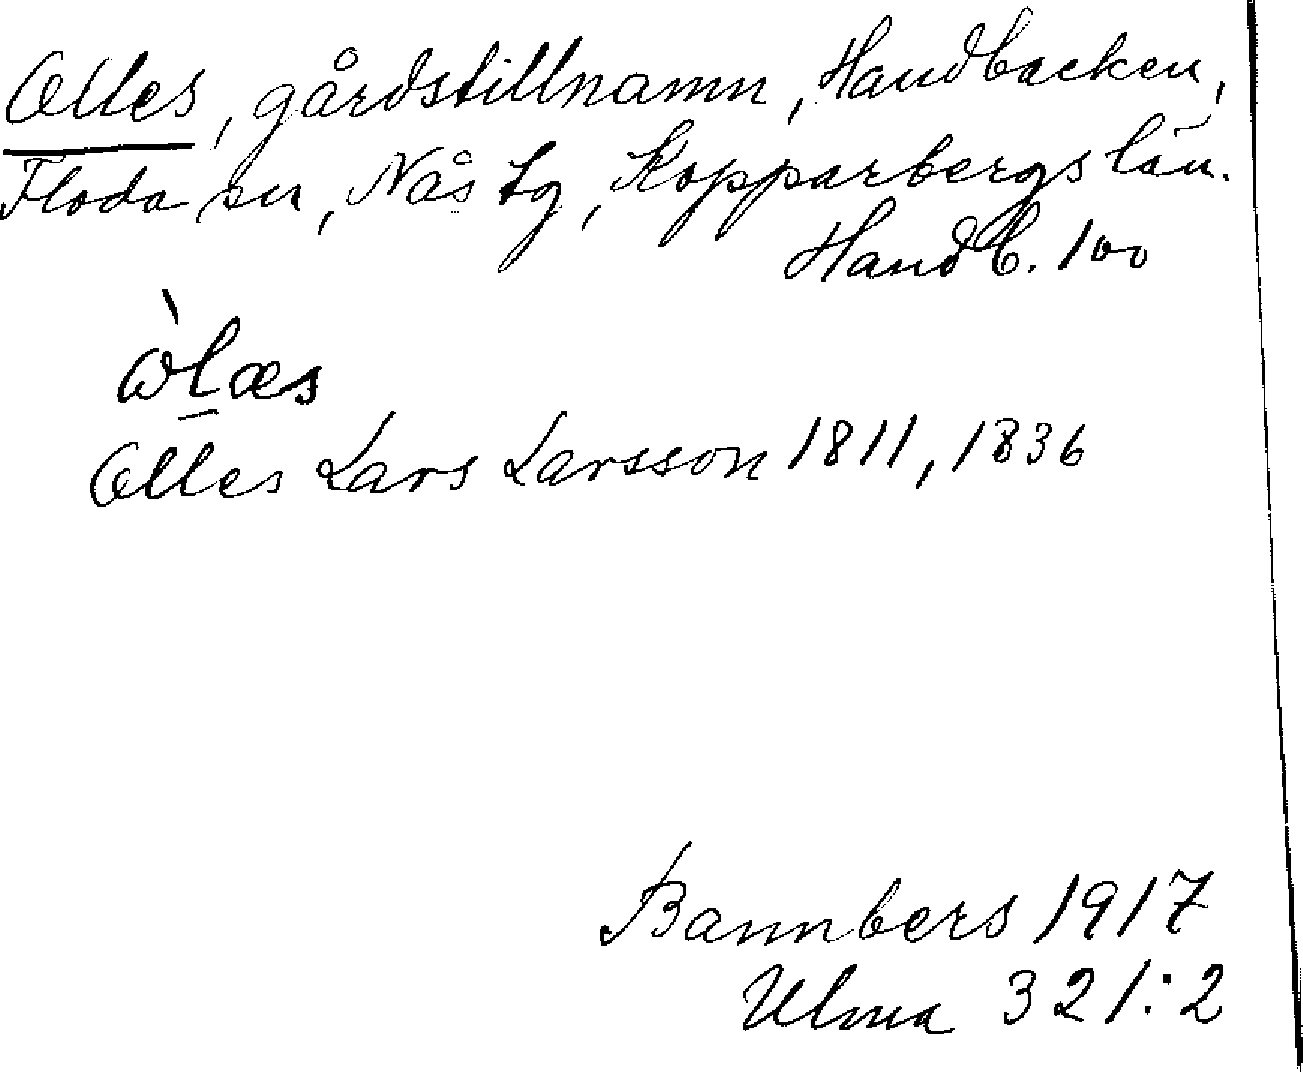 Olles, gårdstillnamn, Handbacken,
Floda sn, Nås tg, Kopparbergs län.
Handb. 100
ὼlæs
Olles Lars Larsson 1811, 1836
Bannbers 1917
Ulma 321:2